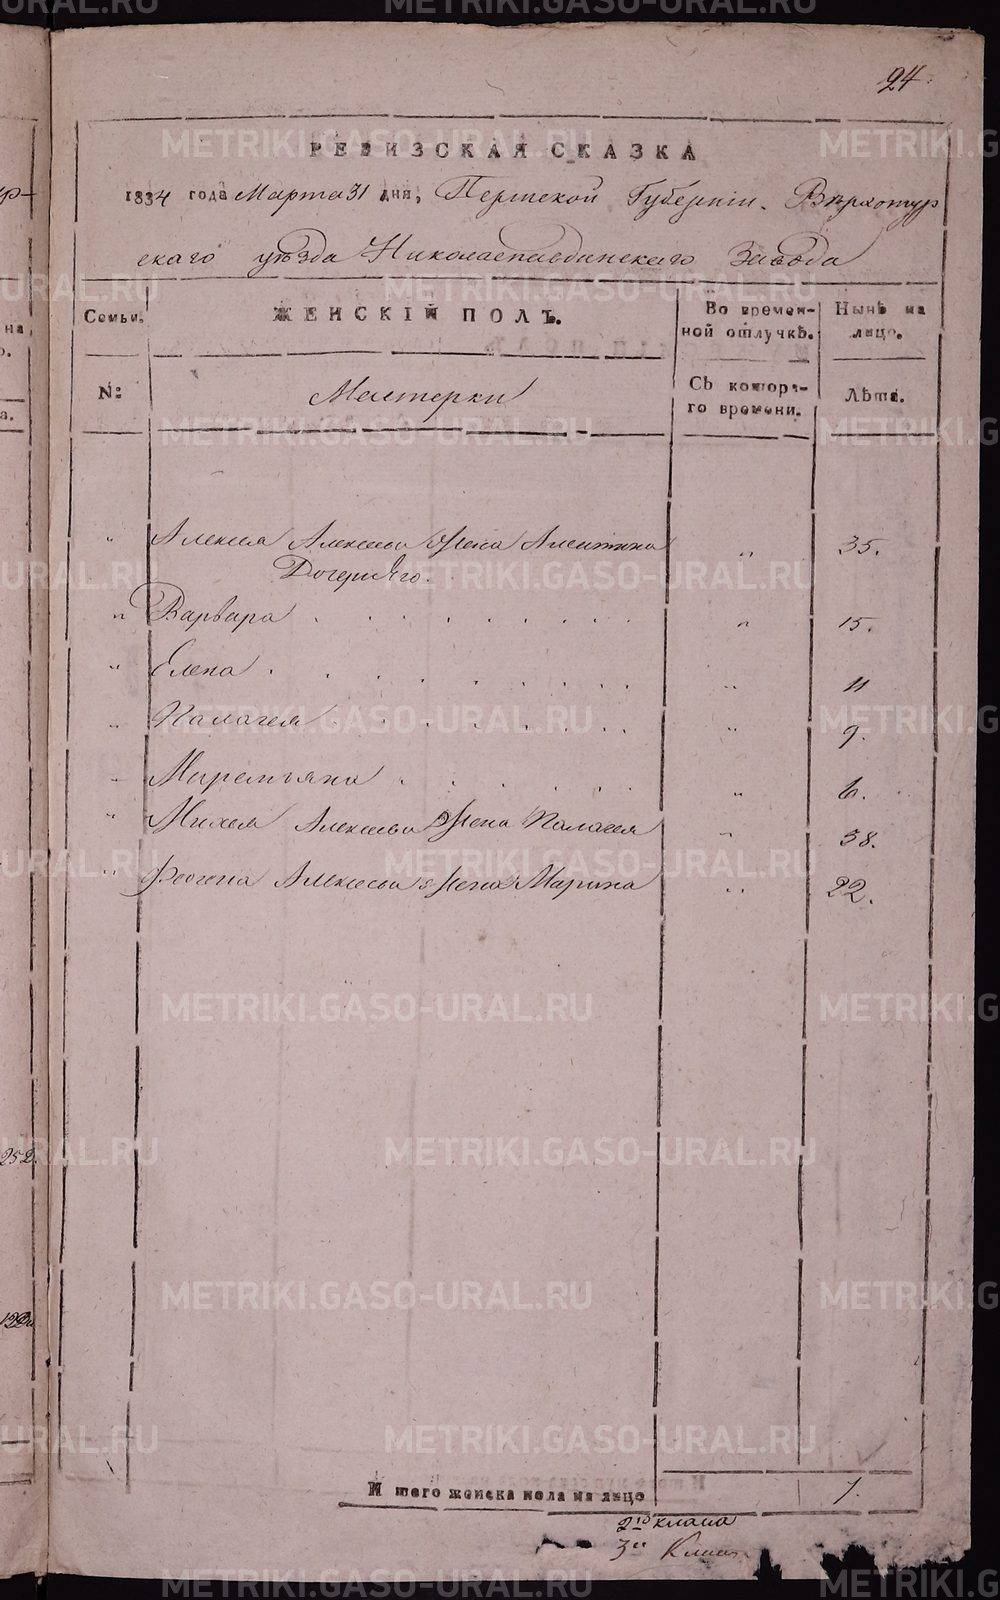 24.
РЕВИЗСКАЯ СКАЗКА
1834 года Марта 31 дня, Пермской Губерніи. Верхотур
скаго уѣзда Николаепавдинскаго Завода
Семьи.
ЖЕНСКІЙ ПОЛЪ.
Во времен-
ной отлучкѣ.
Нынѣ на
лицо.
№:
Мастерки
Съ котора-
го времени.
Лѣта.
" Алексея Алексеева Жена Алентина " 35.
Дочери Его.
" Варвара " 15.
" Елена " 11
" Палагея " 9.
" Маремьяна " 6.
" Михея Алексеева Жена Палагея " 38.
" Феогена Алексеева Жена Марина " 22.
Итого женска пола на лицо 7.
2го класа
3го
252
METRIKI.GASO-URAL.RU